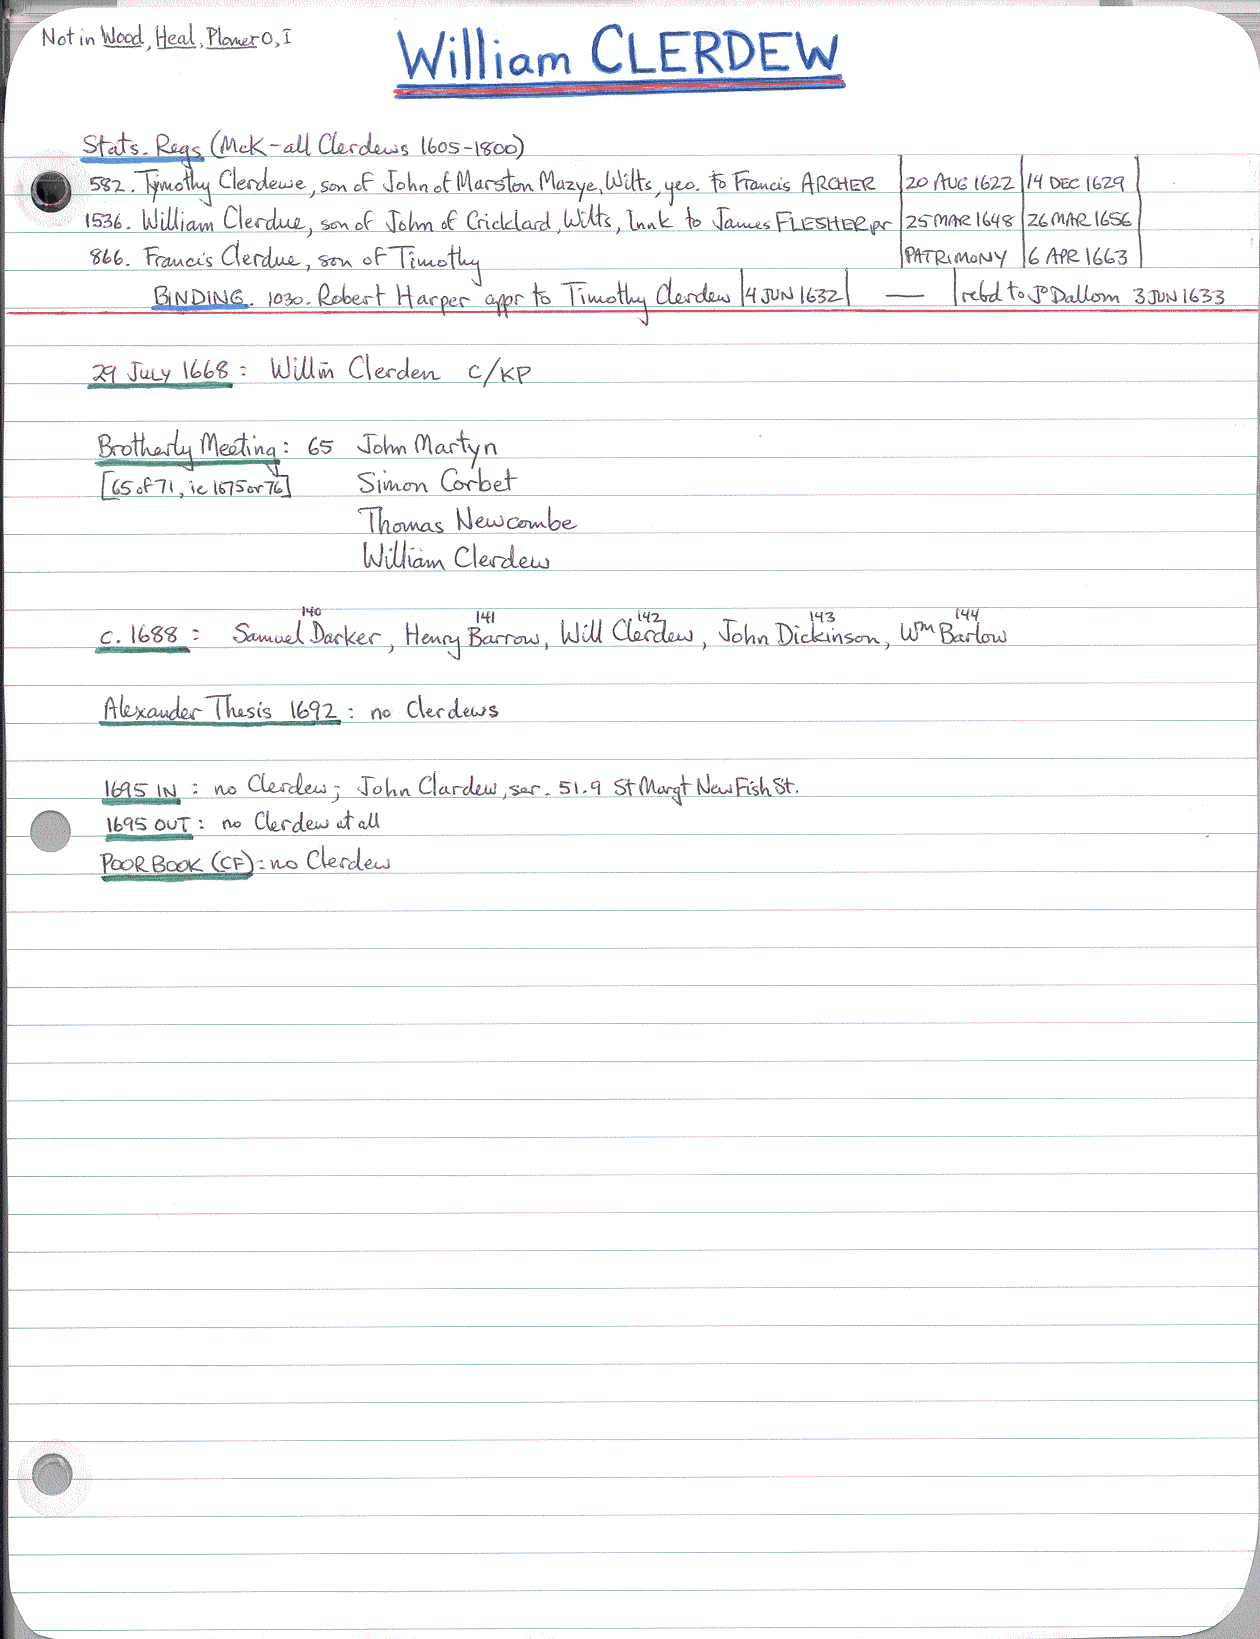 Not in Wood, Heal, Plomer O, I
William CLERDEW
Stats. Regs (McK-all Clerdews 1605-1800)
582. Tymothy Clerdewe, son of John of Marston Mazye, Wilts, yeo. to Francis ARCHER | 20 AUG 1622 | 14 DEC 1629 |
1536. William Clerdue, son of John of Cricklard, Wilts, Innk to James FLESHER pr | 25 MAR 1648 | 26 MAR 1656
866. Francis Clerdue, son of Timothy | PATRIMONY | 6 APR 1663 |
BINDING. 1030. Robert Harper appr to Timothy Clerdew | 4 JUN 1632 | — | rebd to Jo Dallom 3 JUN 1633
29 July 1668: Willm Clerden C/KP
Brotherly Meeting: 65 John Martyn
[65 of 71, ie 1675 or 76] Simon Corbet
Thomas Newcombe
William Clerdew
140 141 142 143 144
c. 1688: Samuel Darker, Henry Barrow, Will Clerdew, John Dickinson, Wm Barlow
Alexander Thesis 1692: no Clerdews
1695 IN: no Clerdew; John Clardew, ser. 51.9 St Margt New Fish St.
1695 OUT: no Clerdew at all
POOR BOOK (CF): no Clerdew